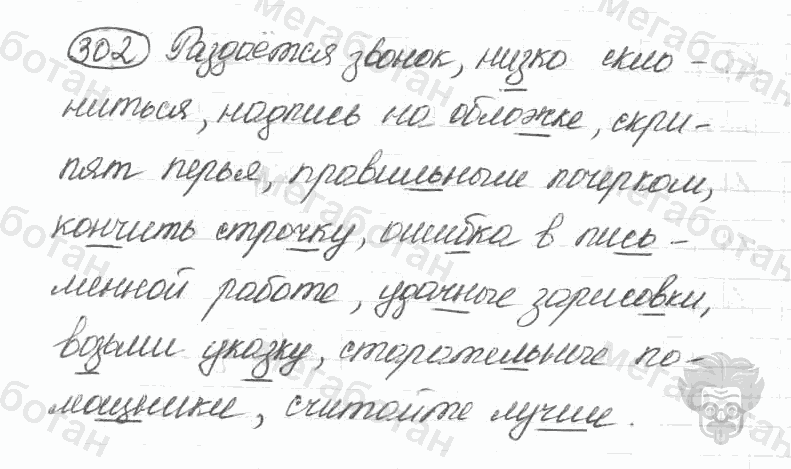 302 Раздаётся звонок, низко скло-
ниться, надпись на обложке, скри-
пят перья, правильным почерком,
кончить строчку, ошибка в пись-
менной работе, удачные зарисовки,
возьми указку, старательные по-
мощники, считайте лучше.
мегаботан